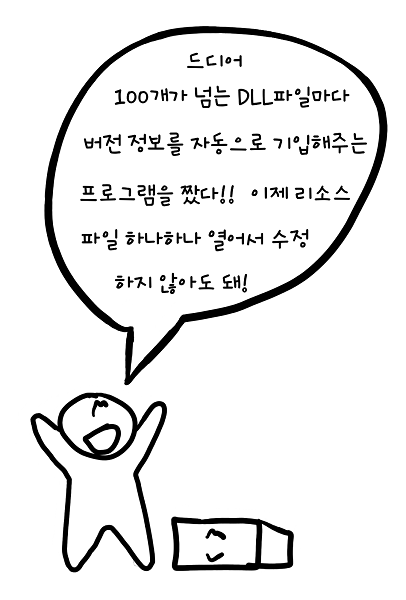 드디어
100개가 넘는 DLL파일마다
버전 정보를 자동으로 기입해주는
프로그램을 짰다!! 이제 리소스
파일 하나하나 열어서 수정
하지 않아도 돼!